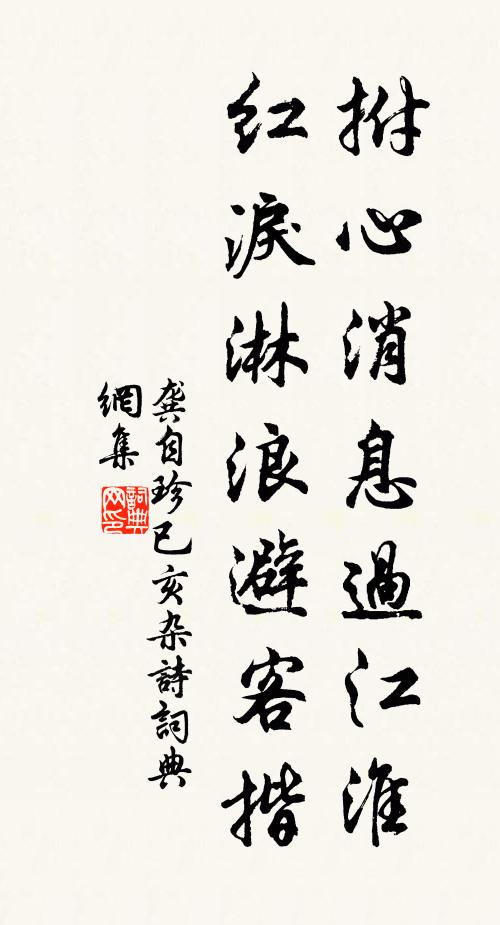 拊心消息過江淮
紅淚淋浪避客揩
龔自珍已亥杂詩詞典
網集
詞典
网印